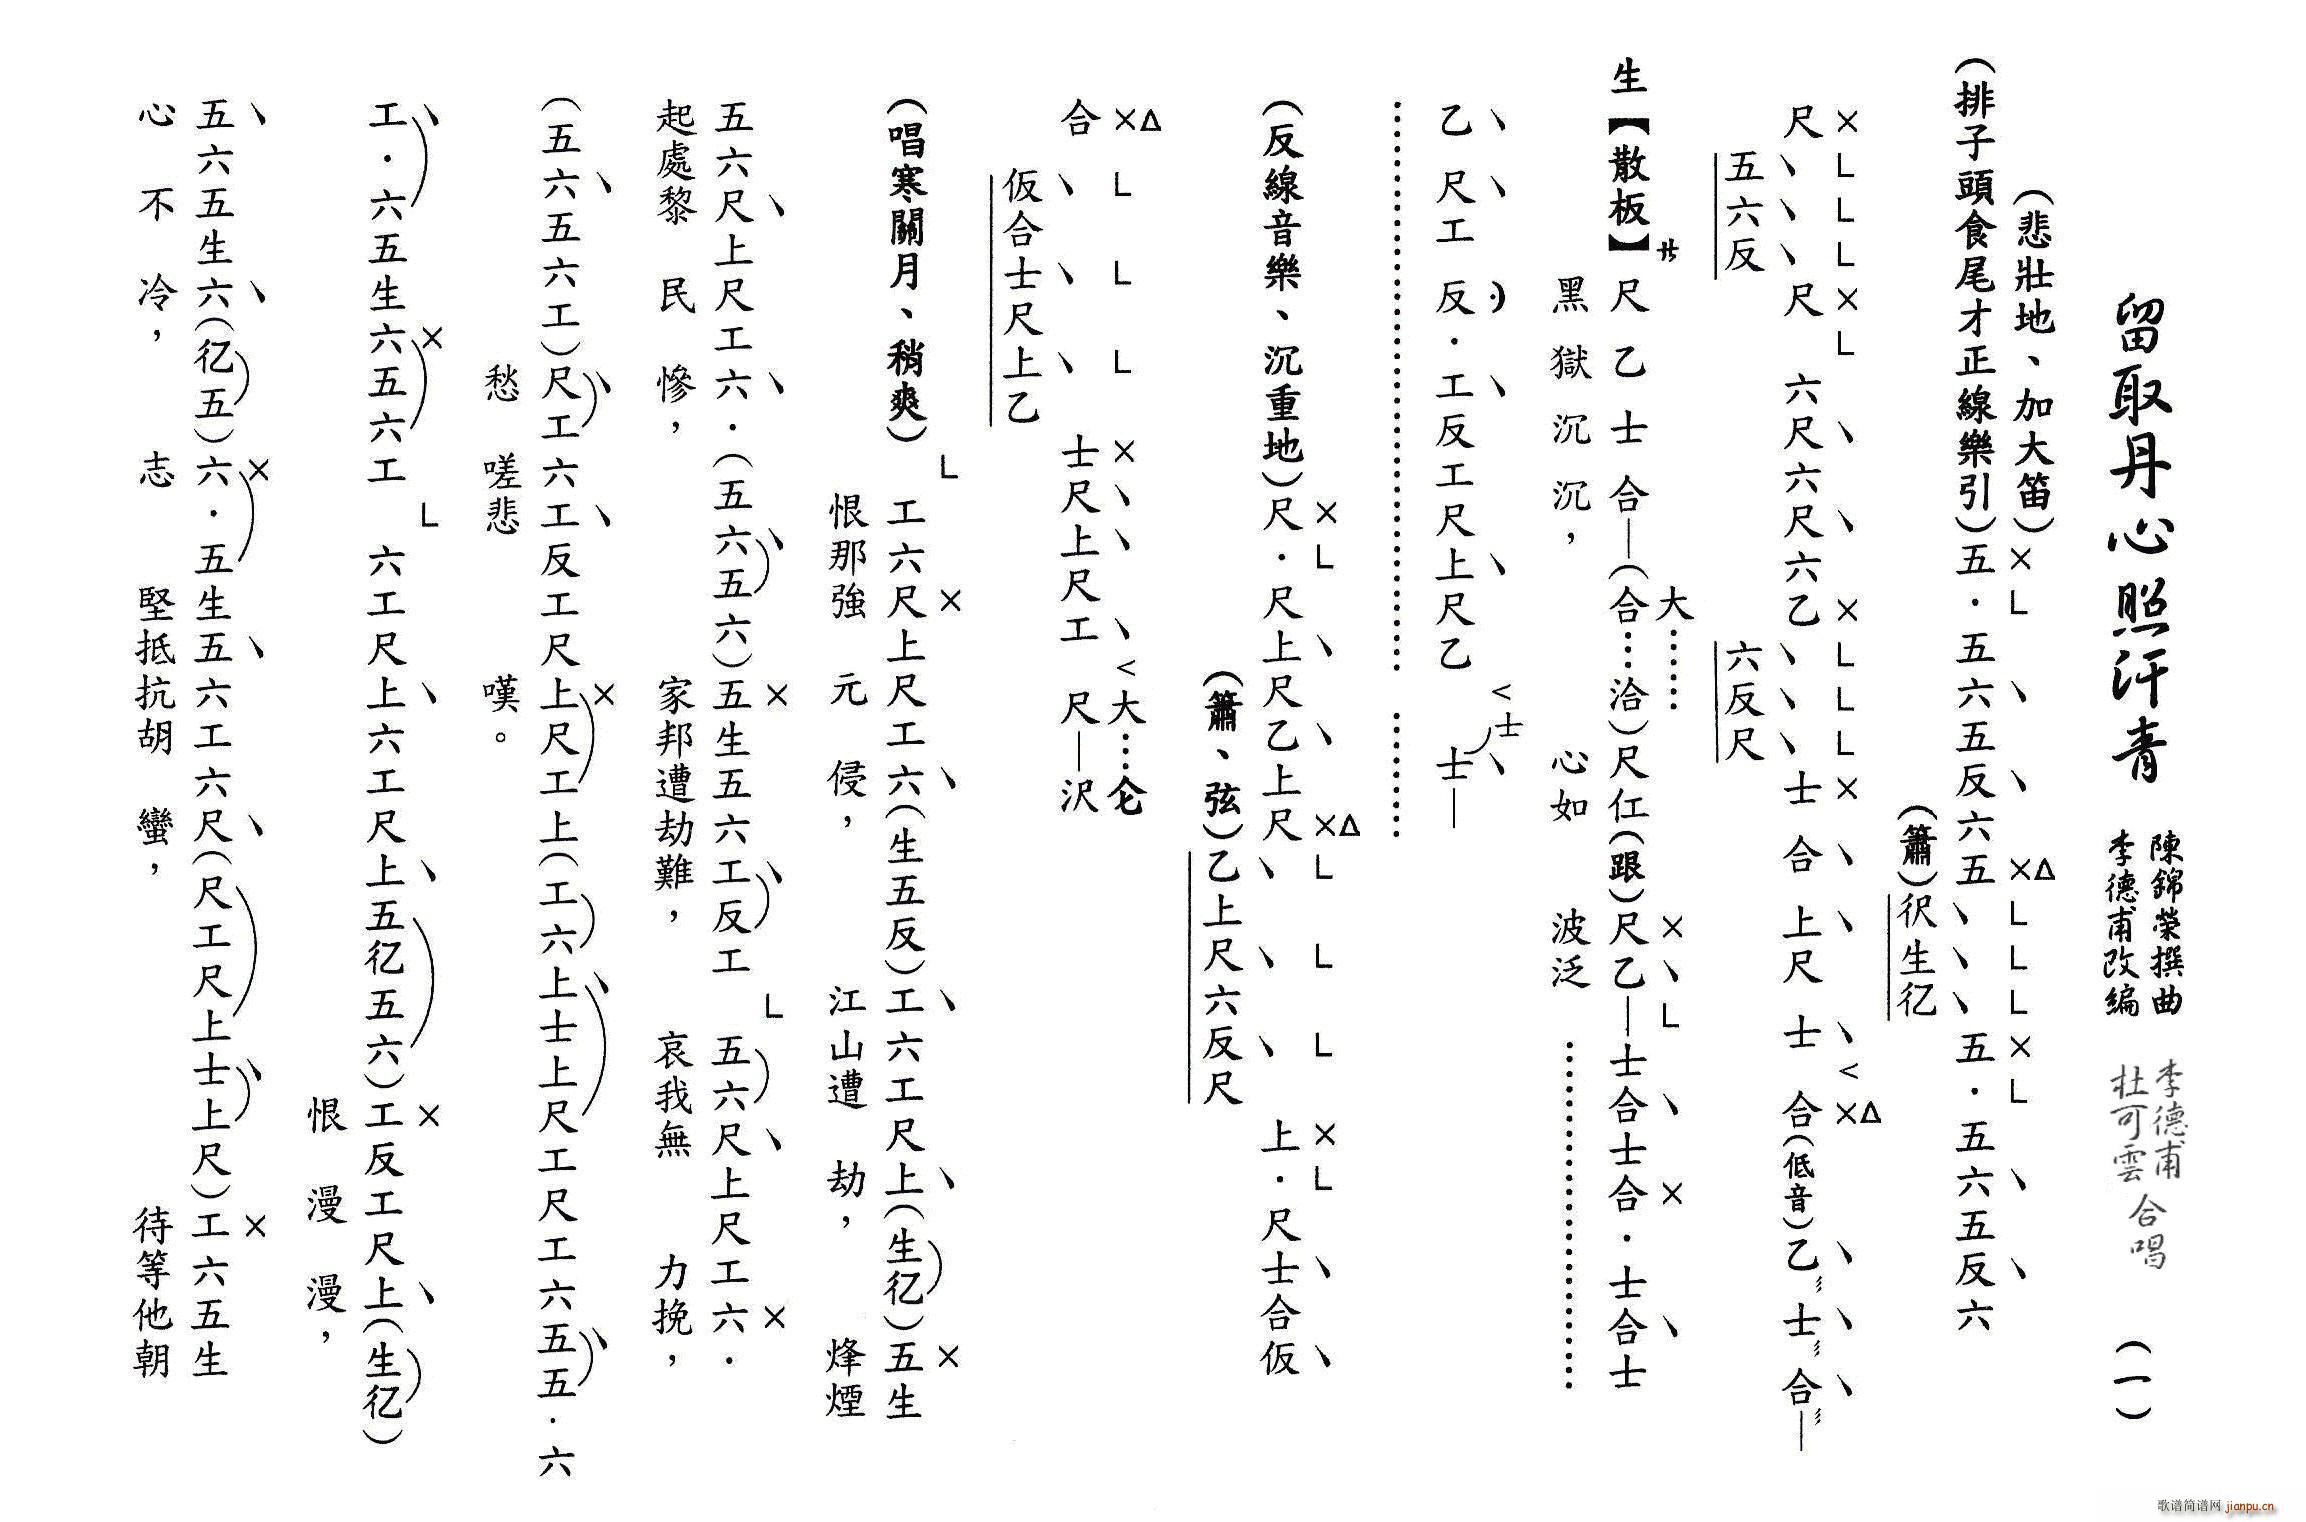 留取丹心照汗青
陳錦榮撰曲
李德甫改編
李德甫
杜可雲
合唱
(一)
(悲壯地、加大笛)
(排子頭食尾才正線樂引)五·五六五反六五 五·五六五反六
(簫)伬生亿
尺 尺 六尺六尺六乙 士合上尺士合(低音)乙士合—
五六反
六反尺
生【散板】尺乙士合—(合……洽)尺仜(跟)尺乙—士合士合·士合士
大……
黑獄沉沉,心如波泛
乙尺工反·工反工尺上尺乙 士—
士
(反線音樂、沉重地)尺·尺上尺乙上尺 上·尺士合仮
(簫、弦)乙上尺六反尺
合 士尺上尺工 尺—沢
大……仑
仮合士尺上乙
(唱寒關月、稍爽) 工六尺上尺工六(生五反)工六工尺上(生亿)五生
恨那強元侵,江山遭劫,烽煙
五六尺上尺工六·(五六五六)五生五六工反工 五六尺上尺工六·
起處黎民慘,家邦遭劫難,哀我無力挽,
(五六五六工)尺工六工反工尺上尺工上(工六上士上尺工尺工六五五·六
愁嗟悲嘆。
工·六五生六五六工 六工尺上六工尺上五亿五六)工反工尺上(生亿)
恨漫漫,
五六五生六(亿五)六·五生五六工六尺(尺工尺上士上尺)工六五生
心不冷,志堅抵抗胡蠻,待等他朝
歌谱简谱网 jianpu.cn